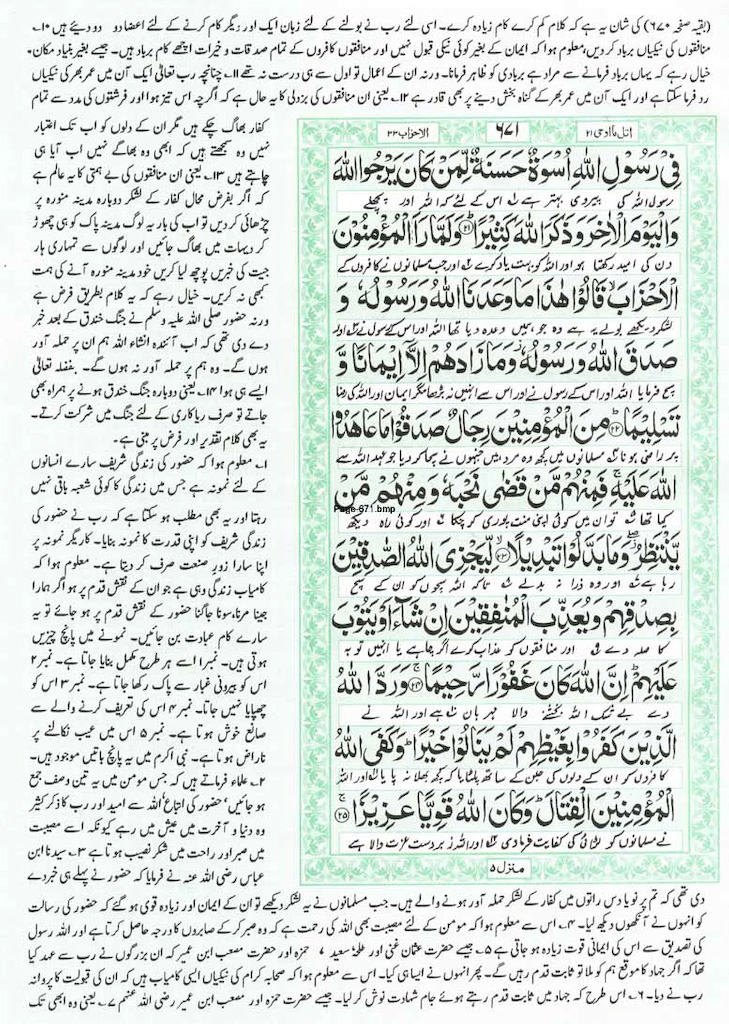 (بقیہ صفحہ ۶۷۰) کی شان یہ ہے کہ کلام کم کرے کام زیادہ کرے۔ اسی لئے رب نے بولنے کے لئے زبان ایک اور دیگر کام کرنے کے لئے اعضا دو دو دیئے ہیں ۱۰۔
منافقوں کی نیکیاں برباد کر دیں، معلوم ہوا کہ ایمان کے بغیر کوئی نیکی قبول نہیں اور منافقوں کافروں کے تمام صدقات و خیرات اچھے کام برباد ہیں۔ جیسے بغیر بنیاد مکان۔
خیال رہے کہ یہاں برباد فرمانے سے مراد ہے بربادی کو ظاہر فرمانا۔ ورنہ ان کے اعمال تو اول سے ہی درست نہ تھے ۱۱۔ چنانچہ رب تعالیٰ ایک آن میں عمر بھر کی نیکیاں
رد فرما سکتا ہے اور ایک آن میں عمر بھر کے گناہ بخش دینے پر بھی قادر ہے ۱۲۔ یعنی ان منافقوں کی بزدلی کا یہ حال ہے کہ اگرچہ اس تیز ہوا اور فرشتوں کی مدد سے تمام
کفار بھاگ چکے ہیں مگر ان کے دلوں کو اب تک اعتبار
نہیں وہ سمجھتے ہیں کہ ابھی وہ بھاگے نہیں اب آیا ہی
چاہتے ہیں ۱۳۔ یعنی ان منافقوں کی بے ہمتی کا یہ عالم ہے
کہ اگر بفرض محال کفار کے لشکر دوبارہ مدینہ منورہ پر
چڑھائی کر دیں تو اب کی بار یہ لوگ مدینہ پاک کو ہی چھوڑ
کر دیہات میں بھاگ جائیں اور لوگوں سے تمہاری ہار
جیت کی خبریں پوچھ لیا کریں خود مدینہ منورہ آنے کی ہمت
کبھی نہ کریں۔ خیال رہے کہ یہ کلام بطریق فرض ہے
ورنہ حضور صلی اللہ علیہ وسلم نے جنگ خندق کے بعد خبر
دے دی تھی کہ اب آئندہ انشاء اللہ ہم ان پر حملہ آور
ہوں گے۔ وہ ہم پر حملہ آور نہ ہوں گے۔ بفضلہ تعالیٰ
ایسے ہی ہوا ۱۴۔ یعنی دوبارہ جنگ خندق ہونے پر ہمراہ بھی
جاتے تو صرف ریاکاری کے لئے جنگ میں شرکت کرتے۔
یہ بھی کلام تقدیر اور فرض پر مبنی ہے۔
۱۔ معلوم ہوا کہ حضور کی زندگی شریف سارے انسانوں
کے لئے نمونہ ہے جس میں زندگی کا کوئی شعبہ باقی نہیں
رہتا اور یہ بھی مطلب ہو سکتا ہے کہ رب نے حضور کی
زندگی شریف کو اپنی قدرت کا نمونہ بنایا۔ کاریگر نمونہ پر
اپنا سارا زور صنعت صرف کر دیتا ہے۔ معلوم ہوا کہ
کامیاب زندگی وہی ہے جو ان کے نقش قدم پر ہو اگر ہمارا
جینا مرنا، سونا جاگنا حضور کے نقش قدم پر ہو جائے تو یہ
سارے کام عبادت بن جائیں۔ نمونے میں پانچ چیزیں
ہوتی ہیں۔ نمبر ۱ اسے ہر طرح مکمل بنایا جاتا ہے۔ نمبر ۲
اس کو بیرونی غبار سے پاک رکھا جاتا ہے۔ نمبر ۳ اس کو
چھپایا نہیں جاتا۔ نمبر ۴ اس کی تعریف کرنے والے سے
صانع خوش ہوتا ہے۔ نمبر ۵ اس میں عیب نکالنے پر
ناراض ہوتا ہے۔ نبی اکرم میں یہ پانچ باتیں موجود ہیں۔
۲۔ علماء فرماتے ہیں کہ جس مومن میں یہ تین وصف جمع
ہو جائیں، حضور کی اتباع اللہ سے امید اور رب کا ذکر کثیر
وہ دنیا و آخرت میں عیش میں رہے کیونکہ اسے مصیبت
میں صبر اور راحت میں شکر نصیب ہوتا ہے ۳۔ سیدنا ابن
عباس رضی اللہ عنہ نے فرمایا کہ حضور نے پہلے ہی خبر دے
اتل ما اوحی ۲۱
۶۷۱
الاحزاب ۳۳
فِیْ رَسُوْلِ اللّٰهِ اُسْوَةٌ حَسَنَةٌ لِّمَنْ كَانَ یَرْجُوا اللّٰهَ
رسول اللہ کی پیروی بہتر ہے اس کے لئے کہ اللہ اور پچھلے
وَالْیَوْمَ الْاٰخِرَ وَذَكَرَ اللّٰهَ كَثِیْرًا ۲۱ وَلَمَّا رَاَ الْمُؤْمِنُوْنَ
دن کی امید رکھتا ہو اور اللہ کو بہت یاد کرے اور جب مسلمانوں نے کافروں کے
الْاَحْزَابَ قَالُوْا هٰذَا مَا وَعَدَنَا اللّٰهُ وَرَسُوْلُهٗ وَ
لشکر دیکھے بولے یہ ہے وہ جو ہمیں وعدہ دیا تھا اللہ اور اس کے رسول نے اور
صَدَقَ اللّٰهُ وَرَسُوْلُهٗ وَمَا زَادَهُمْ اِلَّاۤ اِیْمَانًا وَّ
سچ فرمایا اللہ اور اس کے رسول نے اور اس سے انہیں نہ بڑھا مگر ایمان اور اللہ کی رضا
تَسْلِیْمًا ۲۲ مِنَ الْمُؤْمِنِیْنَ رِجَالٌ صَدَقُوْا مَا عَاهَدُوا
پر راضی ہونا مسلمانوں میں کچھ وہ مرد ہیں جنہوں نے سچا کر دیا جو عہد اللہ سے
اللّٰهَ عَلَیْهِ فَمِنْهُمْ مَّنْ قَضٰی نَحْبَهٗ وَمِنْهُمْ مَّنْ
Page-671.bmp
کیا تھا تو ان میں کوئی اپنی منت پوری کر چکا اور کوئی راہ دیکھ
یَّنْتَظِرُ وَمَا بَدَّلُوْا تَبْدِیْلًا ۲۳ لِّیَجْزِیَ اللّٰهُ الصّٰدِقِیْنَ
رہا ہے اور وہ ذرا نہ بدلے تاکہ اللہ سچوں کو ان کے سچ
بِصِدْقِهِمْ وَیُعَذِّبَ الْمُنٰفِقِیْنَ اِنْ شَآءَ اَوْ یَتُوْبَ
کا صلہ دے اور منافقوں کو عذاب کرے اگر چاہے یا انہیں توبہ
عَلَیْهِمْ اِنَّ اللّٰهَ كَانَ غَفُوْرًا رَّحِیْمًا ۲۴ وَرَدَّ اللّٰهُ
دے بے شک اللہ بخشنے والا مہربان ہے اور اللہ نے
الَّذِیْنَ كَفَرُوْا بِغَیْظِهِمْ لَمْ یَنَالُوْا خَیْرًا وَكَفَی اللّٰهُ
کافروں کو ان کے دلوں کی جلن کے ساتھ پلٹایا کہ کچھ بھلا نہ پایا اور اللہ
الْمُؤْمِنِیْنَ الْقِتَالَ وَكَانَ اللّٰهُ قَوِیًّا عَزِیْزًا ۲۵
نے مسلمانوں کو لڑائی کی کفایت فرما دی اور اللہ زبردست عزت والا ہے
منزل ۵
دی تھی کہ تم پر نو یا دس راتوں میں کفار کے لشکر حملہ آور ہونے والے ہیں۔ جب مسلمانوں نے یہ لشکر دیکھے تو ان کے ایمان اور زیادہ قوی ہو گئے کہ حضور کی رسالت
کو انہوں نے آنکھوں دیکھ لیا۔ ۴۔ اس سے معلوم ہوا کہ مومن کے لئے مصیبت بھی اللہ کی رحمت ہے کہ وہ صبر کر کے صابروں کا درجہ حاصل کرتا ہے اور اللہ رسول
کی تصدیق سے اس کی ایمانی قوت زیادہ ہو جاتی ہے ۵۔ جیسے حضرت عثمان غنی اور طلحہ سعید حمزہ اور حضرت مصعب ابن عمیر کہ ان بزرگوں نے رب سے عہد کیا
تھا کہ اگر جہاد کا موقع ہم کو ملا تو ثابت قدم رہیں گے۔ پھر انہوں نے ایسا ہی کیا۔ اس سے معلوم ہوا کہ صحابہ کرام کی نیکیاں ایسی کامیاب ہیں کہ ان کی قبولیت کا پروانہ
رب نے دیا۔ ۶۔ اس طرح کہ جہاد میں ثابت قدم رہتے ہوئے جام شہادت نوش کر لیا۔ جیسے حضرت حمزہ اور مصعب ابن عمیر رضی اللہ عنہم ۷۔ یعنی وہ ابھی تک